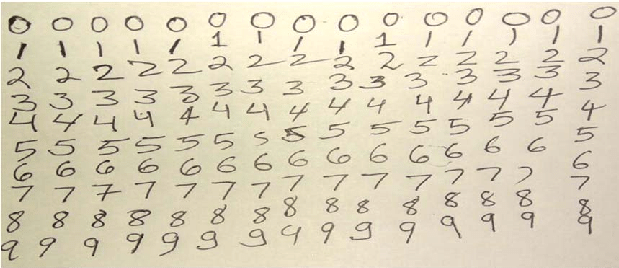 0 0 0 0 0 0 0 0 0 0 0 0 0 0 0
1 1 1 1 1 1 1 1 1 1 1 1 1 1 1
2 2 2 2 2 2 2 2 2 2 2 2 2 2 2
3 3 3 3 3 3 3 3 3 3 3 3 3 3 3
4 4 4 4 4 4 4 4 4 4 4 4 4 4 4
5 5 5 5 5 5 5 5 5 5 5 5 5 5 5
6 6 6 6 6 6 6 6 6 6 6 6 6 6 6
7 7 7 7 7 7 7 7 7 7 7 7 7 7 7
8 8 8 8 8 8 8 8 8 8 8 8 8 8 8
9 9 9 9 9 9 9 9 9 9 9 9 9 9 9